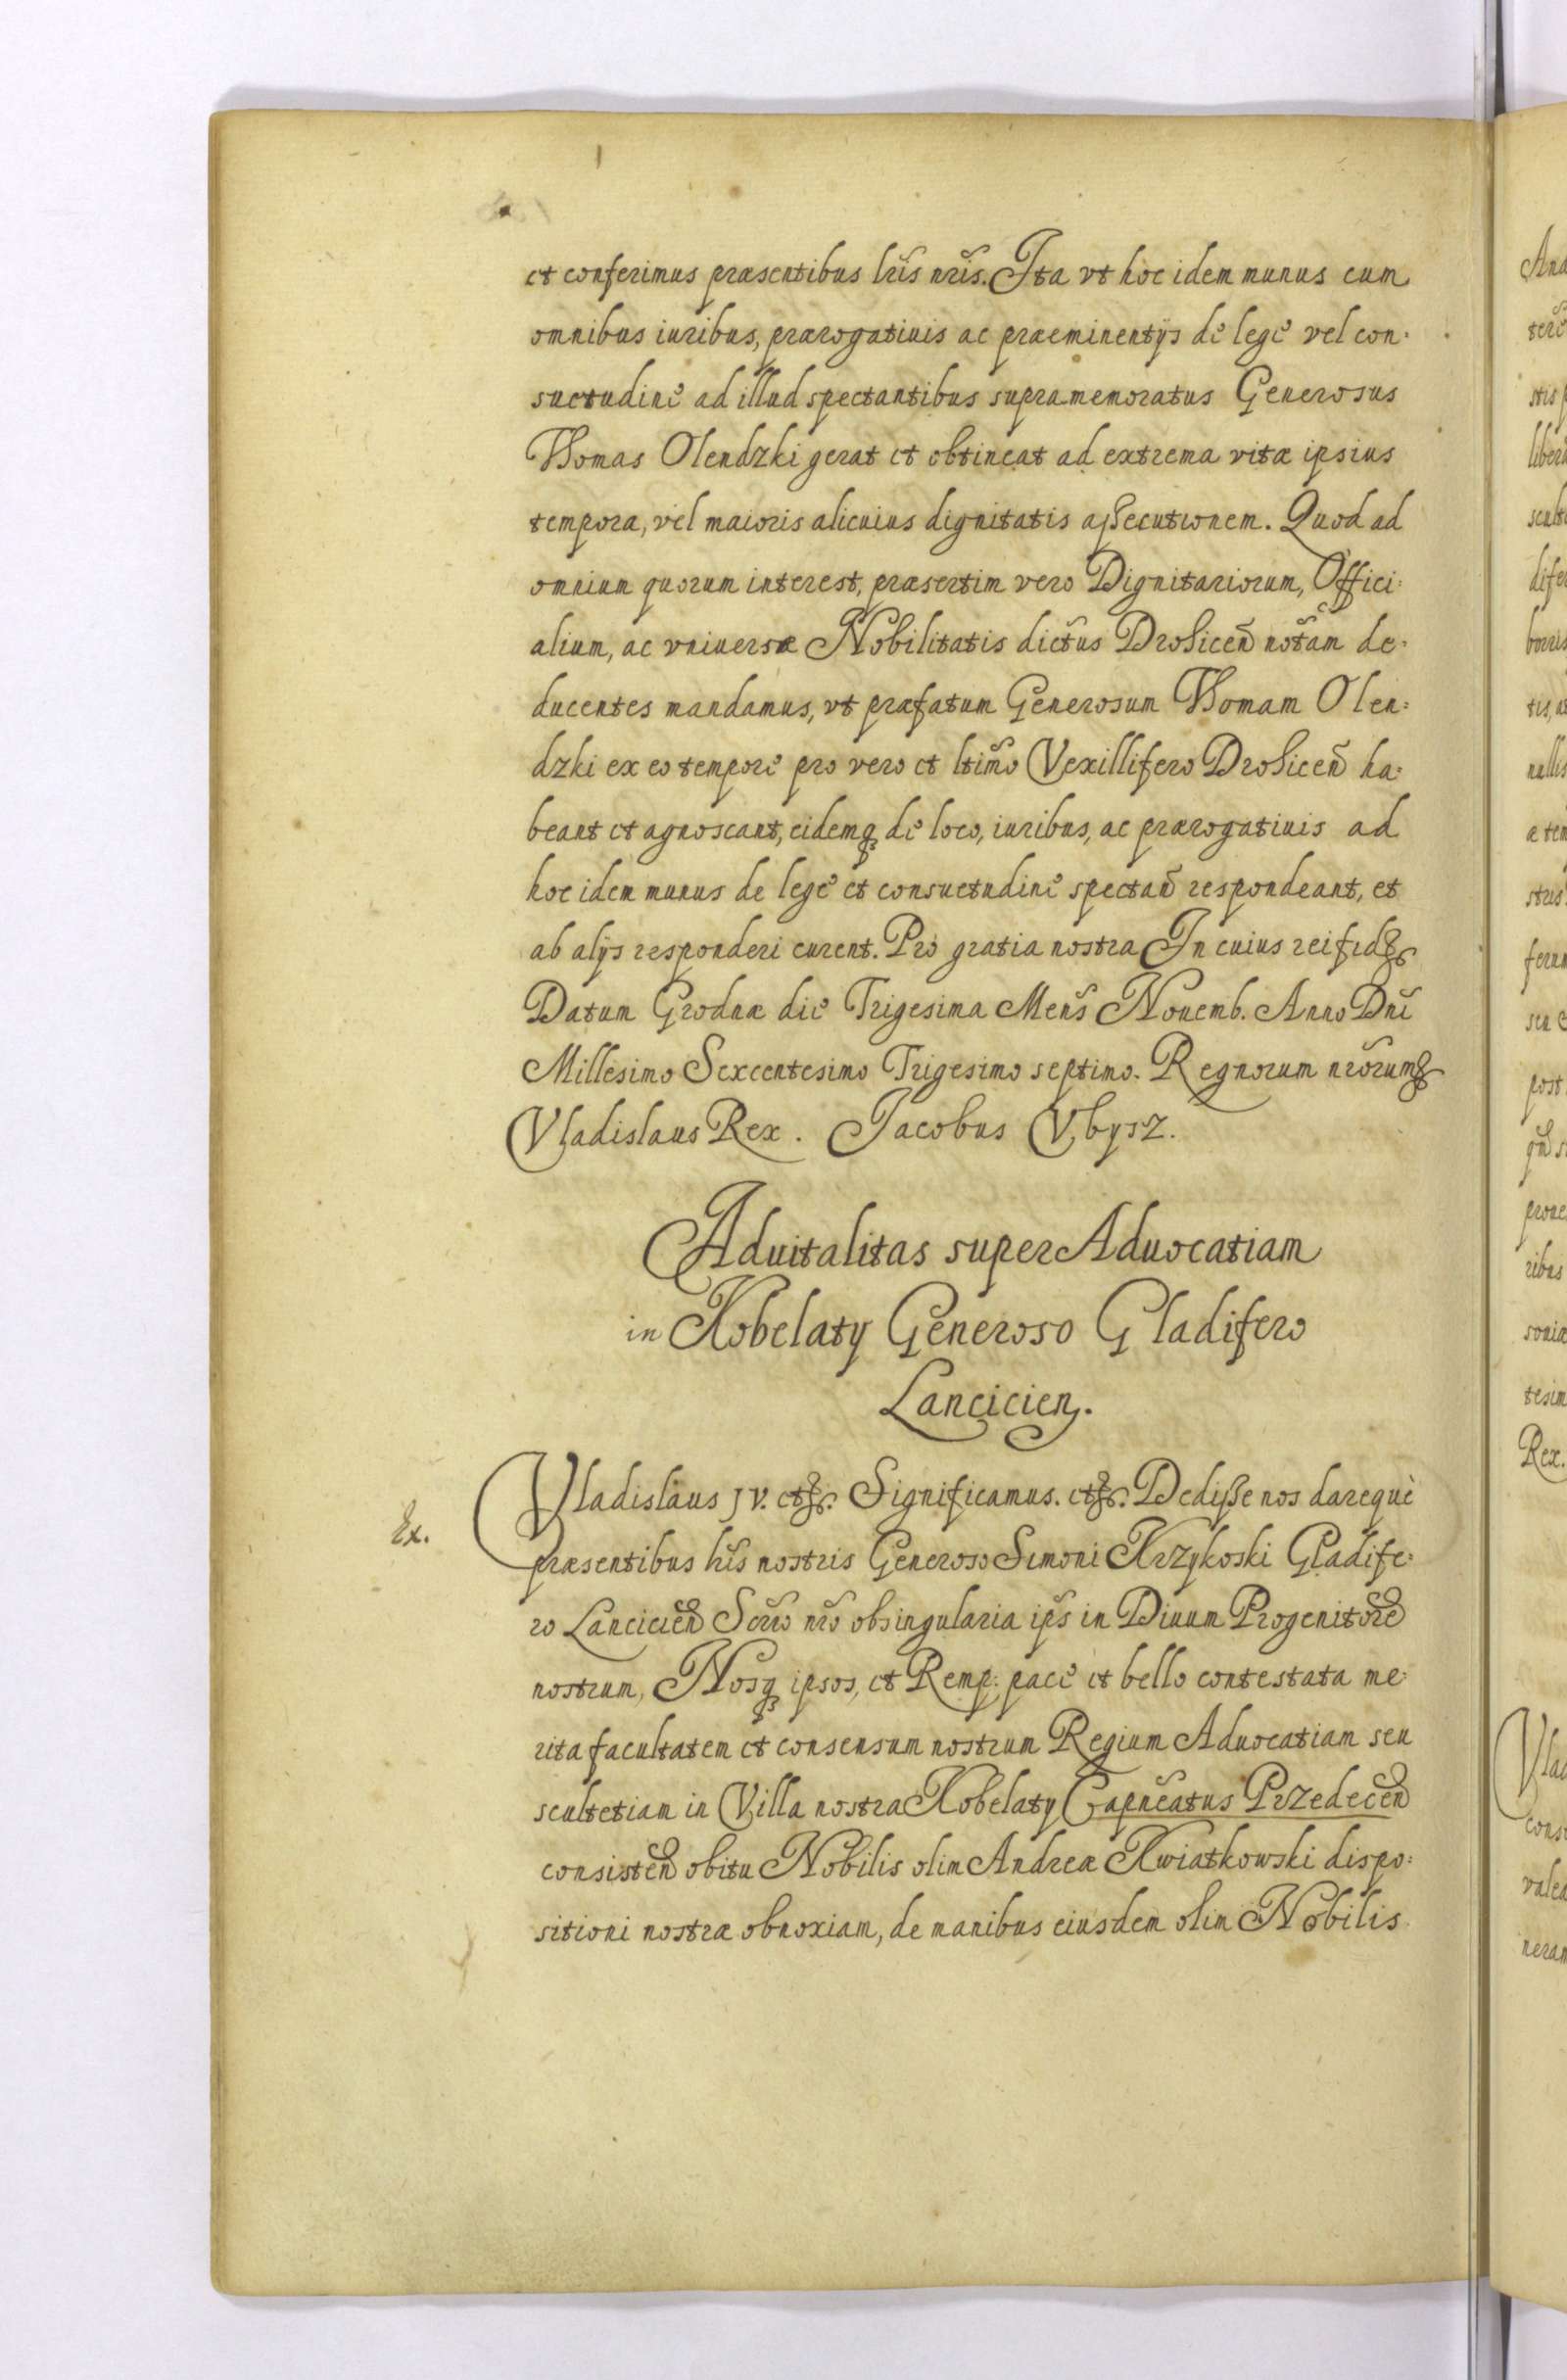 et conferimus præsentibus lris nris. Ita vt hoc idem munus cum
omnibus iuribus, prærogatiuis ac præeminentijs de lege vel con:
suetudine ad illud spectantibus supramemoratus Generosus
Thomas Olendzki gerat et obtineat ad extrema vitæ ipsius
tempora, vel maioris alicuius dignitatis assecutionem. Quod ad
omnium quorum interest, præsertim vero Dignitariorum, Offici:
alium, ac vniversæ Nobilitatis dictus Drohiceñ notam de:
ducentes mandamus, vt præfatum Generosum Thomam Olen:
dzki ex eo tempore pro vero et ltimo Vexillifero Drohiceñ ha:
beant et agnoscant, eidemq de loco, iuribus, ac prærogatiuis ad
hoc idem munus de lege et consuetudine spectañ respondeant, et
ab alijs responderi curent. Pro gratia nostra In cuius rei fid
Datum Grodnæ die Trigesima Mens Nouemb. Anno Dni
Millesimo Sexcentesimo Trigesimo septimo. Regnorum nrorum
Vladislaus Rex. Jacobus Vbysz.
Aduitalitas super Aduocatiam
in Kobelaty Generoso Gladifero
Lancicien.
Vladislaus IV. etc. Significamus. etc. Dedisse nos dareque
Ex.
præsentibus lris nostris Generoso Simoni Krzykoski Gladife:
ro Lancicień Scrio nro ob singularia ips in Diuum Progenitore
nostrum, Nosq ipsos, et Remp: pace et bello contestata me:
rita facultatem et consensum nostrum Regium Aduocatiam seu
scultetiam in Villa nostra Kobelaty Capneatus Przedeceñ
consisteñ obitu Nobilis olim Andreæ Kwiatkowski dispo:
sitioni nostræ obnoxiam, de manibus eiusdem olim Nobilis